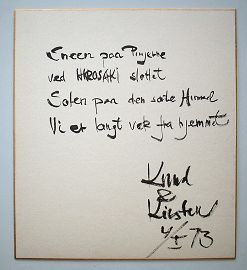 Sneen paa Pinjerne
ved HIROSAKI slottet
Solen paa den sorte Himmel
Vi er langt væk fra hjemmet
Knud
&
Kirsten
4/I 73